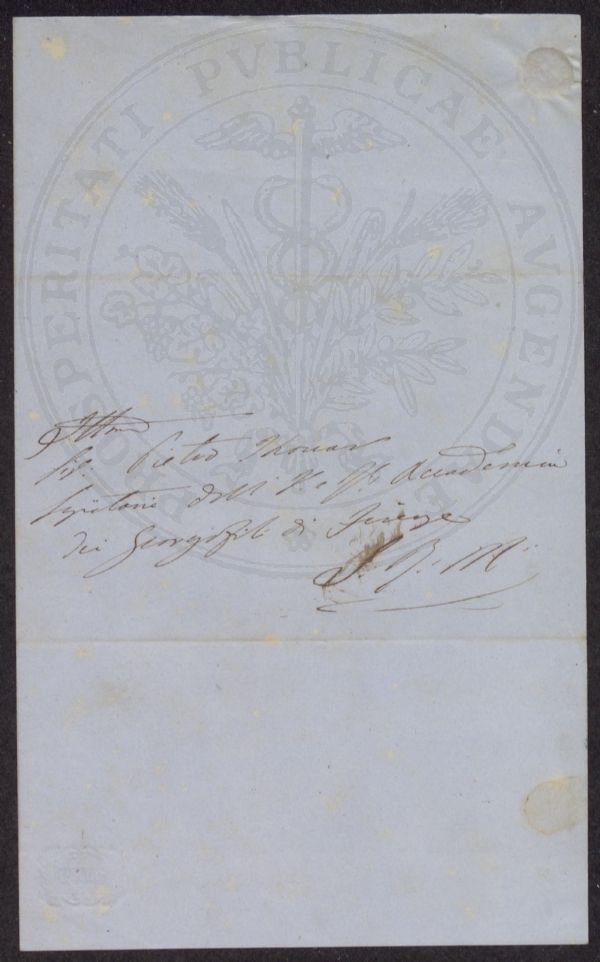 PROSPERITATI PVBLICAE AVGENDAE
Sig. Pietro Thouar
Segretario dell' I. e R. Accademia
dei Georgofili di Firenze
S. R. M.